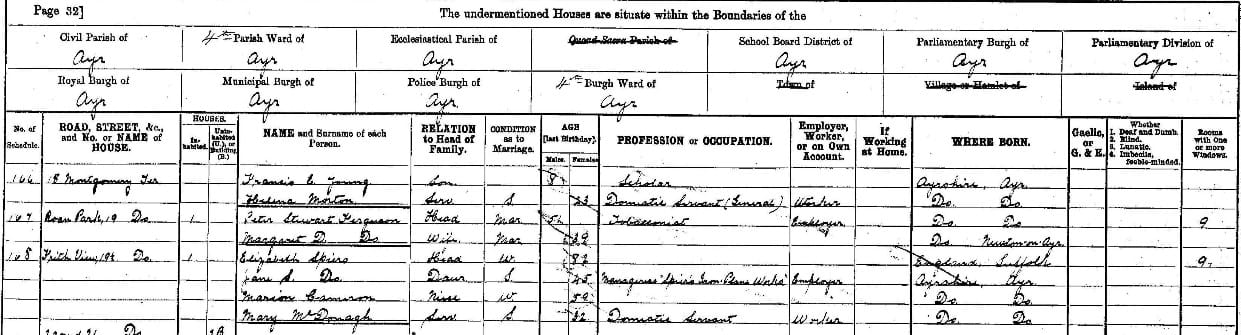 Page 32] The undermentioned Houses are situate within the Boundaries of the
Civil Parish of 4th Parish Ward of Ecclesiastical Parish of Quoad Sacra Parish of School Board District of Parliamentary Burgh of Parliamentary Division of
Ayr Ayr Ayr Ayr Ayr Ayr
Royal Burgh of Municipal Burgh of Police Burgh of 4th Burgh Ward of Town of Village or Hamlet of Island of
Ayr Ayr Ayr Ayr
No. of Schedule. ROAD, STREET, &c., and No. or NAME of HOUSE. HOUSES. Inhabited. Uninhabited (U.), or Building (B.) NAME and Surname of each Person. RELATION to Head of Family. CONDITION as to Marriage. AGE [last Birthday]. Males. Females. PROFESSION or OCCUPATION. Employer, Worker, or on Own Account. If Working at Home. WHERE BORN. Gaelic, or G. & E. Whether 1. Deaf and Dumb. 2. Blind. 3. Lunatic. 4. Imbecile, feeble-minded. Rooms with One or more Windows.
166 18 Montgomery Ter Francis C. Young Son 8 Scholar Ayrshire, Ayr
Helena Morton Serv S 23 Domestic Servant (General) Worker Do. Do.
167 Roan Park, 19 Do. 1 Peter Stewart Ferguson Head Mar Tobacconist Employer Do. Do 9
Margaret D. Do Wife Mar Do. Newton-on-Ayr
168 Frith View, Do. 1 Elizabeth Spiers Head W 82 England, Suffolk 9
Jane S. Do. Daur S 45 Manageress Spiers' Works Employer Ayrshire, Ayr
Marion Cameron Niece W 59 Do. Do.
Mary McDonagh Serv S 22 Domestic Servant Worker Do. Do.
Do